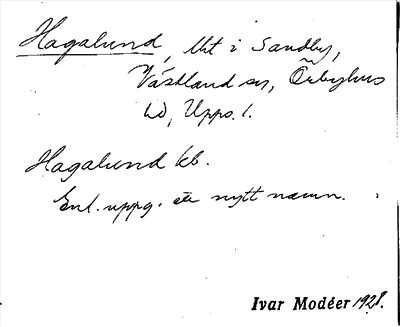 Hagalund, lht i Sandby,
Västland sn, Örbyhus
hd, Upps. l.
Hagalund kb.
Enl. uppg. ett nytt namn.
Ivar Modéer 1928.